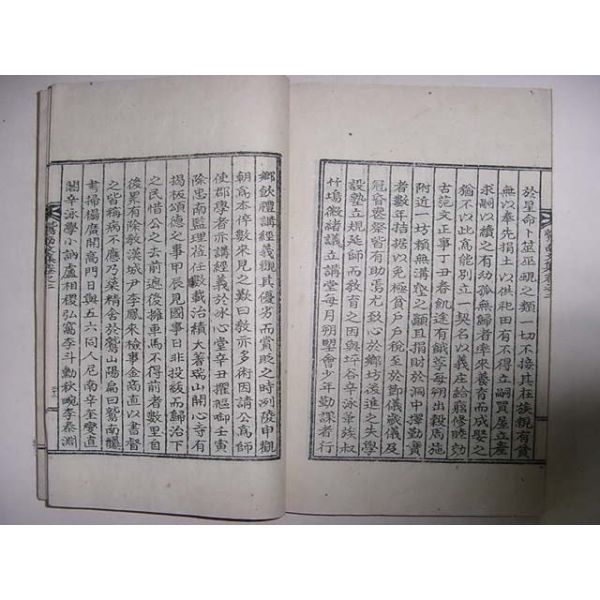 於星命卜筮巫覡之類一切不接其在族親有貧
無以奉先捐土以供祀田有不得立嗣買屋立產
求嗣以續之有幼孤無歸者率來養育而成娶之
猶不以此爲能別立一契名以義庄給窮修睦効
古范文正事丁丑春飢途有餓莩每朔出穀周施
附近一坊賴無溝壑之顚且捐財於洞中擇勤實
者數年拮据以免極貧戶戶稅至於鄧儀戲儀及
冠昏喪祭皆有助焉尤致心於鄉坊後進之失學
設塾立規延師而敎育之因與坪谷辛泳華族叔
竹塢徽緖議立講堂每月朔望會少年勤課者行
鄕飮禮講經義觀其優劣而賞貶之時列陵申觀
朝爲本倅數來見之歎曰敎亦多術因請公爲師
使郡學者亦講經義於氷心堂辛丑擢監卿壬寅
除忠南監理莅任數載治績大著瑞山開心寺有
揭板頌德之事甲辰見國事日非投紱而歸治下
之民惜公之去前遮後擁車馬不得前者數里自
後累有除敎漢城尹李鳳來檢事金商直以書督
之皆稱病不應乃築精舍於鷲山陽扁曰鷲南軅
考掃傷廣開高門日與五六同人尼南辛至燮直
閣辛泳學小訥盧相稷弘窩李斗勳秋畹李泰淵